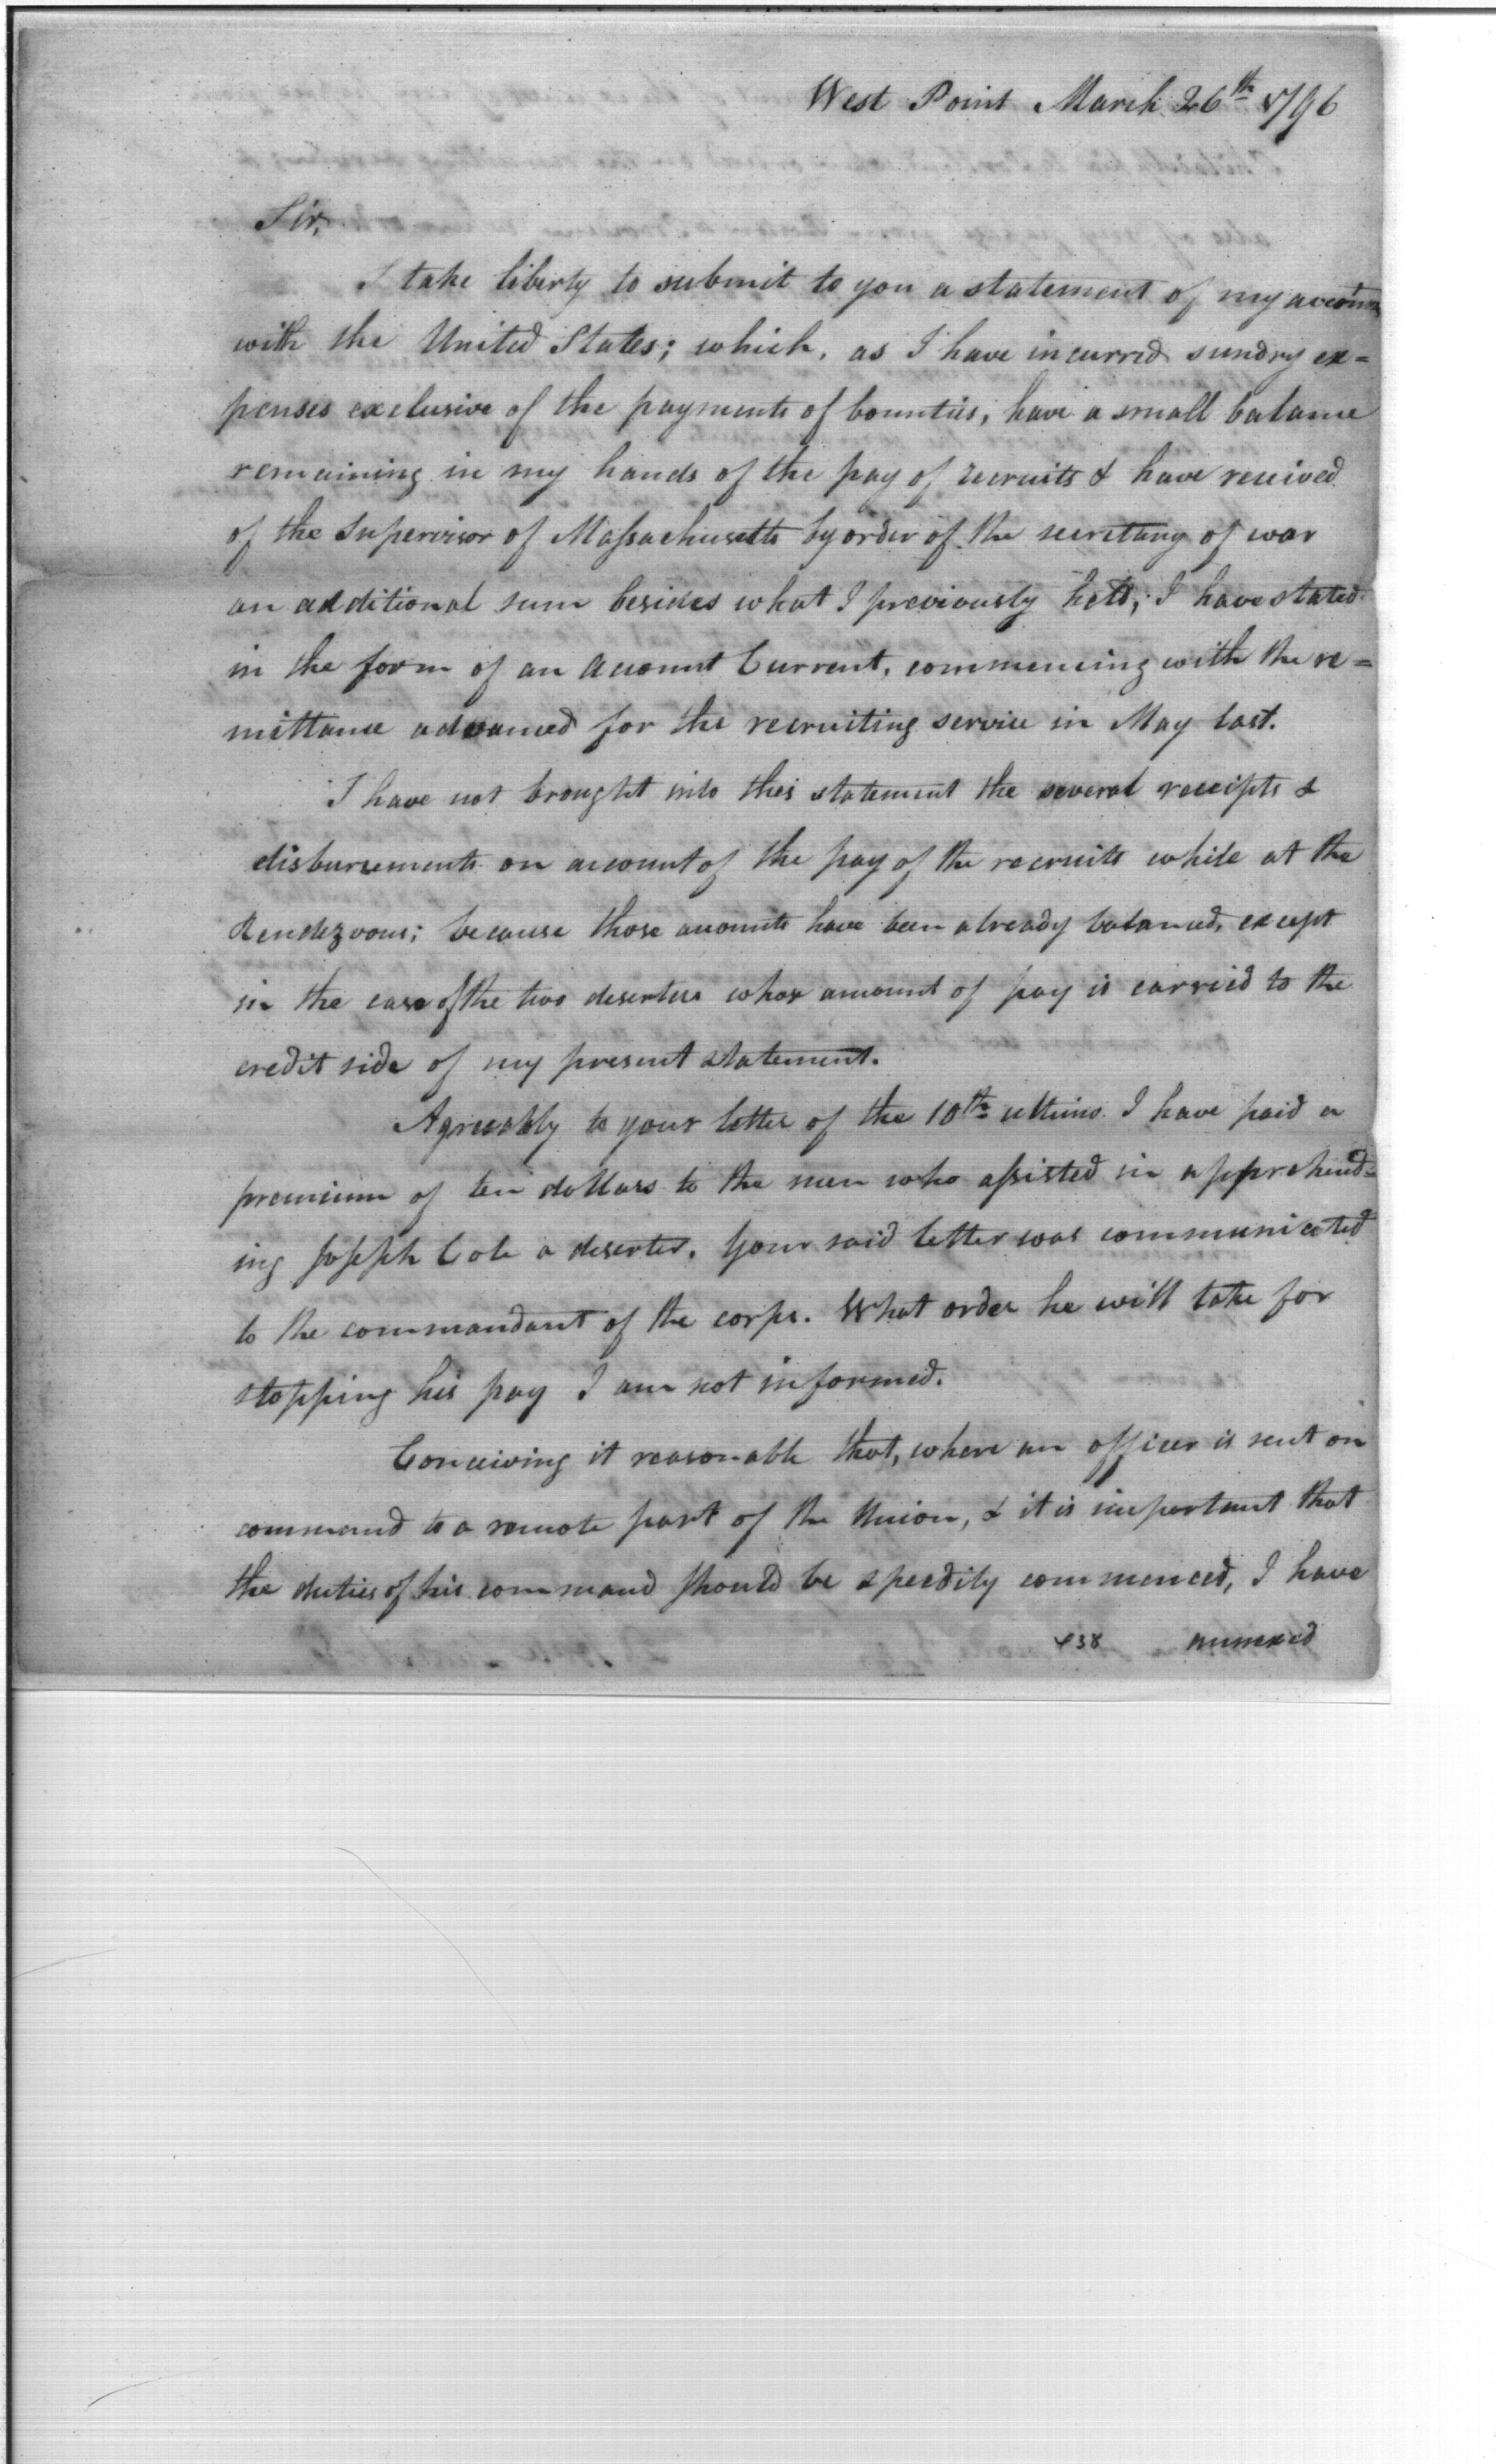 West Point March 26th 1796
Sir,
I take liberty to submit to you a statement of my accounts
with the United States; which, as I have incurred sundry ex=
penses exclusive of the payments of bounties, have a small balance
remaining in my hands of the pay of recruits & have received
of the Supervisor of Massachusetts by order of the secretary of war
an additional sum besides what I previously held, I have stated
in the form of an Account Current, commencing with the re=
mittance advanced for the recruiting service in May last.
I have not brought into this statement the several receipts &
disbursements on account of the pay of the recruits while at the
Rendezvous; because those accounts have been already balanced, except
in the case of the two deserters whose amount of pay is carried to the
credit side of my present statement.
Agreeably to your letter of the 10th ultimo I have paid a
premium of ten dollars to the men who assisted in apprehend=
ing Joseph Cole a deserter. Your said letter was communicated
to the commandant of the corps. What order he will take for
stopping his pay I am not informed.
Conceiving it reasonable that, where an officer is sent on
command to a remote part of the Union, & it is important that
the duties of his command should be speedily commenced, I have
438 annexed